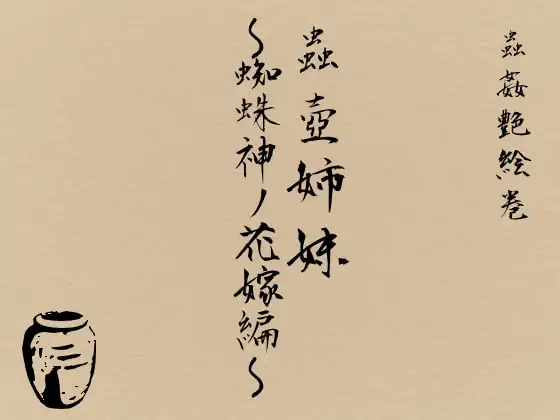 蟲姦艶絵巻
蟲壺姉妹
～蜘蛛神ノ花嫁編～